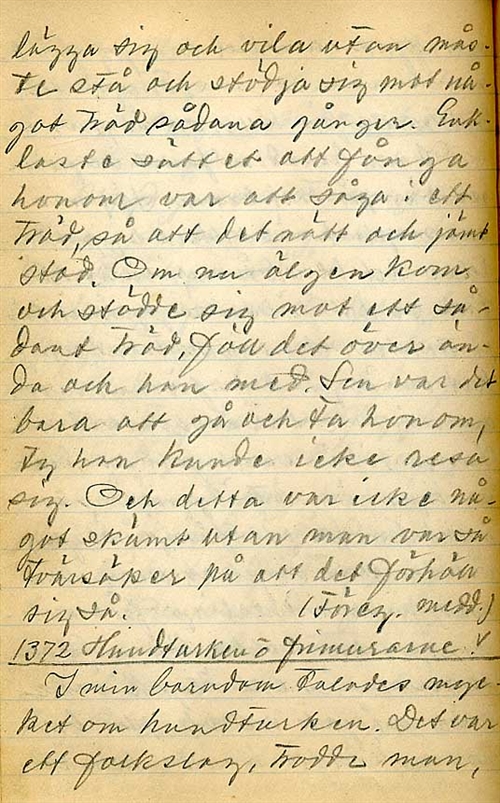 lägga sig och vila utan mås-
te stå och stödja sig mot nå-
got träd sådana gånger. Enk-
laste sättet att fånga
honom var att såga i ett
träd, så att det nätt och jämt
stod. Om nu älgen kom
och stödde sig mot ett så-
dant träd, föll det över än-
da och han med. Sen var det
bara att gå och ta honom,
ty han kunde icke resa
sig. Och detta var icke nå-
got skämt utan man var så
tvärsäker på att det förhöll
sig så. (Föreg. medd.)
1372 Hundturken o frimurarne.
I min barndom talades myc-
ket om hundturken. Det var
ett folkslag, trodde man,